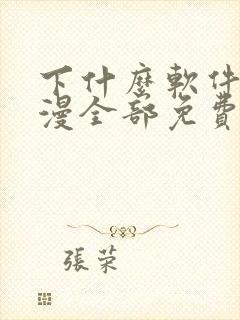 下什麼軟件
漫全部免費
張荣